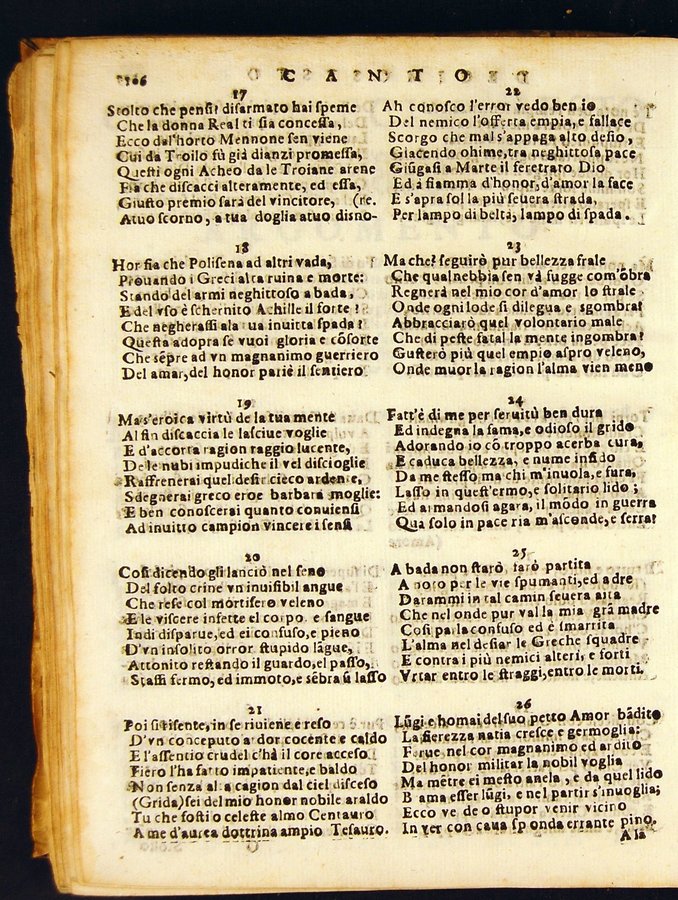 106
CANTO
17
Stolto che pensi? disarmato hai speme
Che la donna Real ti sia concessa,
Ecco dal'horto Mennone sen viene
Cui da Troilo sù già dianzi promessa,
Questi ogni Acheo da le Troiane arene
Fia che discacci alteramente, ed essa,
Giusto premio sarà del vincitore, (re.
A tuo scorno, a tua doglia a tuo disno-
18
Hor fia che Polisena ad altri vada,
Prouando i Greci alta ruina e morte:
Stando del armi neghittoso a bada,
E del vso è schernito Achille il forte?
Che negherassi ala tua inuitta spada?
Questa adopra se vuoi gloria e cõsorte
Che sẽpre ad vn magnanimo guerriero
Del amar, del honor pariè il sentiero
19
Ma s'eroica virtù de la tua mente
Al fin discaccia le lasciue voglie
E d'accorta ragion raggio lucente,
De le nubi impudiche il vel discioglie
Raffrenerai quel desir cieco ardente,
Sdegnerai greco eroe barbara moglie:
E ben conoscerai quanto conuiensi
Ad inuitto campion vincere i sensi
20
Così dicendo gli lanciò nel seno
Del folto crine vn inuisibil angue
Che rese col mortifero veleno
E le viscere infette el corpo e sangue
Indi disparue, ed ei confuso, e pieno
D'vn insolito orror stupido lãgue,
Attonito restando il guardo, el passo,
Stassi fermo, ed immoto, e sẽbra ũ lasso
21
Poi si risente, in se riuiene e reso
D'vn conceputo ardor cocente e caldo
E l'assentio crudel c'hà il core acceso
Fiero l'ha fatto impatiente, e baldo
Non senza alta cagion dal ciel disceso
(Grida) sei del mio honor nobile araldo
Tu che fosti o celeste almo Centauro
A me d'aurea dottrina ampio Tesauro.
22
Ah conosco l'error vedo ben io
Del nemico l'offerta empia, e fallace
Scorgo che mal s'appaga alto desio,
Giacendo ohime, tra neghittosa pace
Giũgasi a Marte il feretrato Dio
Ed à fiamma d'honor, d'amor la face
E s'apra sol la più seuera strada,
Per lampo di beltà, lampo di spada.
23
Ma che? seguirò pur bellezza frale
Che qual nebbia sen và fugge com'õbra
Regnerà nel mio cor d'amor lo strale
Onde ogni lode si dilegua e sgombra?
Abbracciarò quel volontario male
Che di peste fatal la mente ingombra?
Gusterò più quel empio aspro veleno,
Onde muor la ragion l'alma vien meno
24
Fatt'è di me per seruitù ben dura
Ed indegna la fama, e odioso il grido
Adorando io cõ troppo acerba cura,
E caduca bellezza, e nume infido
Da me stesso ma chi m'inuola, e fura,
Lasso in quest'ermo, e solitario lido;
Ed armandosi agara, il mõdo in guerra
Qua solo in pace ria m'asconde, e serra?
25
A bada non starò, farò partita
A noto per le vie spumanti, ed adre
Darammi in tal camin seuera aita
Che nel onde pur val la mia grã madre
Così parla confuso ed è smarrita
L'alma nel desiar le Greche squadre
E contra i più nemici alteri, e forti
Vrtar entro le straggi, entro le morti.
26
Lũgi e homai del suo petto Amor bãdito
La fierezza natia cresce e germoglia:
Ferue nel cor magnanimo ed ardito
Del honor militar la nobil voglia
Ma mẽtre ei mesto anela, e da quel lido
Brama esser lũgi, e nel partir s'inuoglia;
Ecco vede o stupor venir vicino
In ver con caua sponda errante pino.
A la